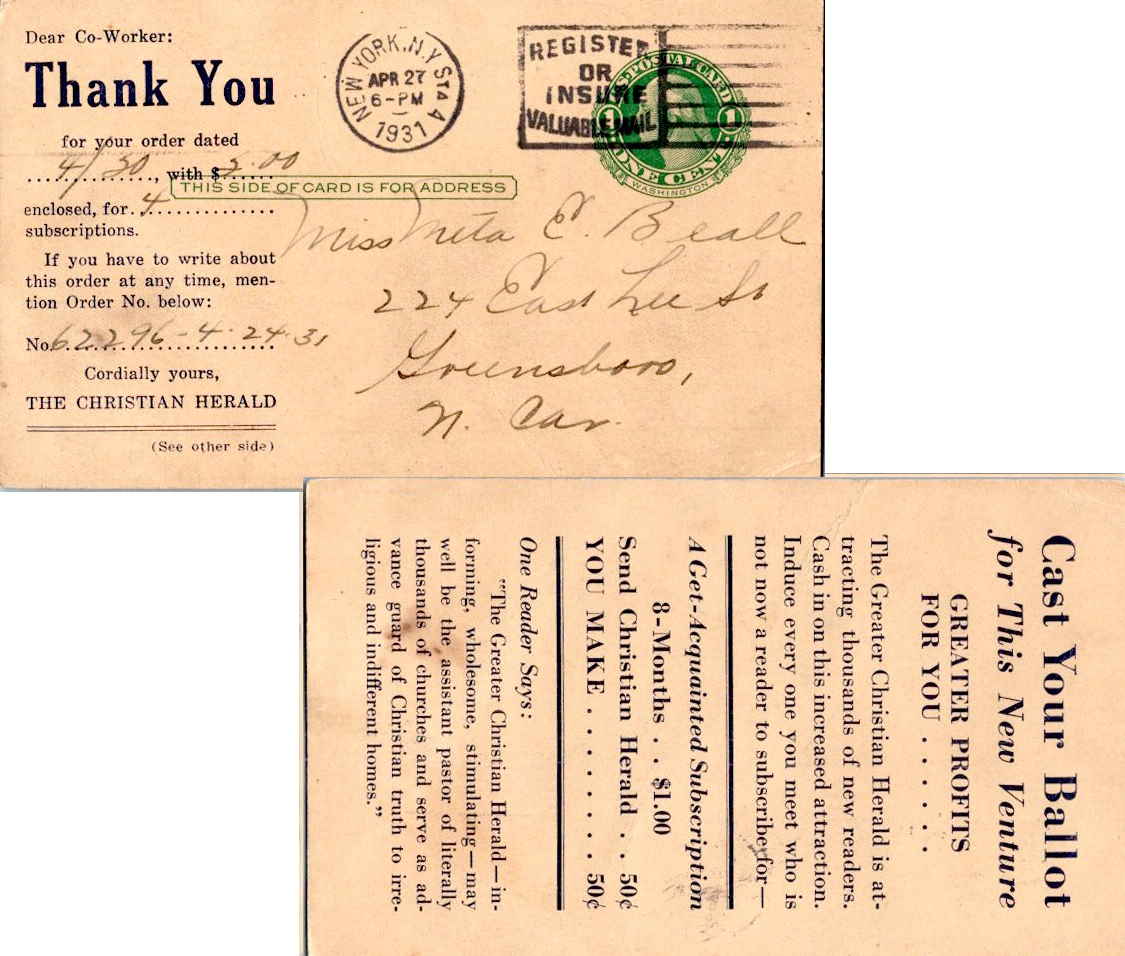 Dear Co-Worker:
Thank You
for your order dated
4/20, with $2.00
enclosed, for 4
subscriptions.
If you have to write about
this order at any time, men-
tion Order No. below:
No. 62296-4-24-31
Cordially yours,
THE CHRISTIAN HERALD
(See other side)
NEW YORK, N.Y. STA A
APR 27
6-PM
1931
REGISTER
OR
INSURE
VALUABLE MAIL
U.S. POSTAL CARD
1 1
ONE CENT
WASHINGTON
THIS SIDE OF CARD IS FOR ADDRESS
Miss Meta E. Beall
224 East Lee St
Greensboro,
N. Car.
Cast Your Ballot
for This New Venture
GREATER PROFITS
FOR YOU . . . . . .
The Greater Christian Herald is at-
tracting thousands of new readers.
Cash in on this increased attraction.
Induce every one you meet who is
not now a reader to subscribe for—
A Get-Acquainted Subscription
8-Months . . $1.00
Send Christian Herald . . 50¢
YOU MAKE . . . . . . . . 50¢
One Reader Says:
"The Greater Christian Herald—in-
forming, wholesome, stimulating—may
well be the assistant pastor of literally
thousands of churches and serve as ad-
vance guard of Christian truth to irre-
ligious and indifferent homes."